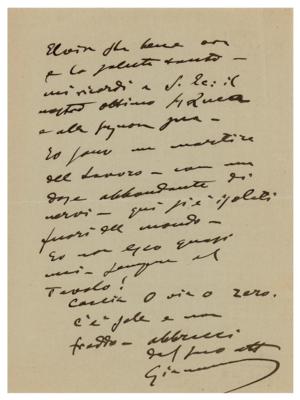 Elvira sta bene ora
e la saluta tanto -
mi ricordi a S. Ec: il
nostro ottimo
e alla Signora sua -
Io sono un martire
del lavoro - con una
dose abbondante di
nervi - qui si è isolati
fuori del mondo -
Io non esco quasi
mai - sempre al
Tavolo!
Caccia 0 via 0 zero.
C'è sole e non
freddo - abbracci
dal suo